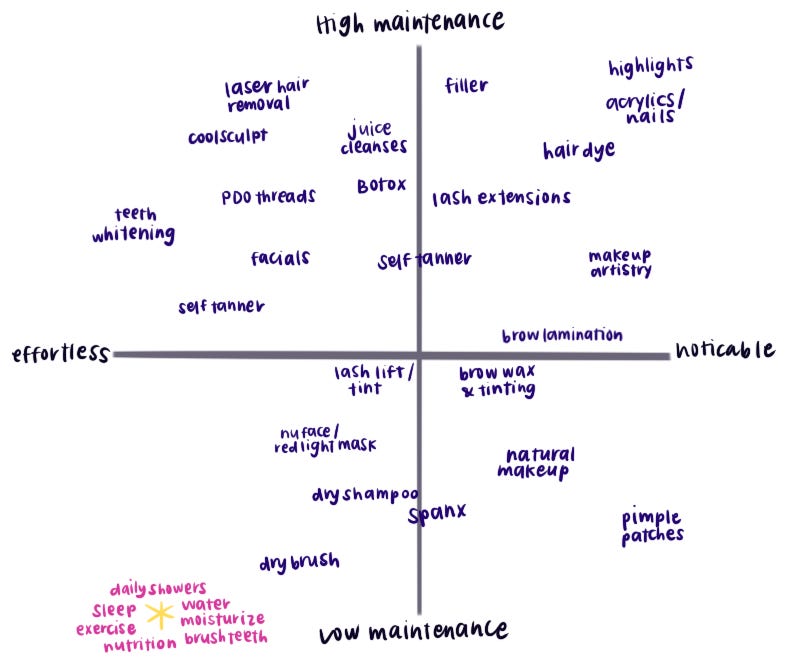 High maintenance
highlights
laser hair
removal
filler
acrylics/
nails
coolsculpt
juice
cleanses
hair dye
Botox
PDO threads
lash extensions
teeth
whitening
facials
self tanner
makeup
artistry
self tanner
brow lamination
effortless
noticable
lash lift/
tint
brow wax
& tinting
nuface/
red light mask
natural
makeup
dry shampoo
Spanx
pimple
patches
dry brush
daily showers
sleep
water
exercise
moisturize
nutrition
brush teeth
low maintenance